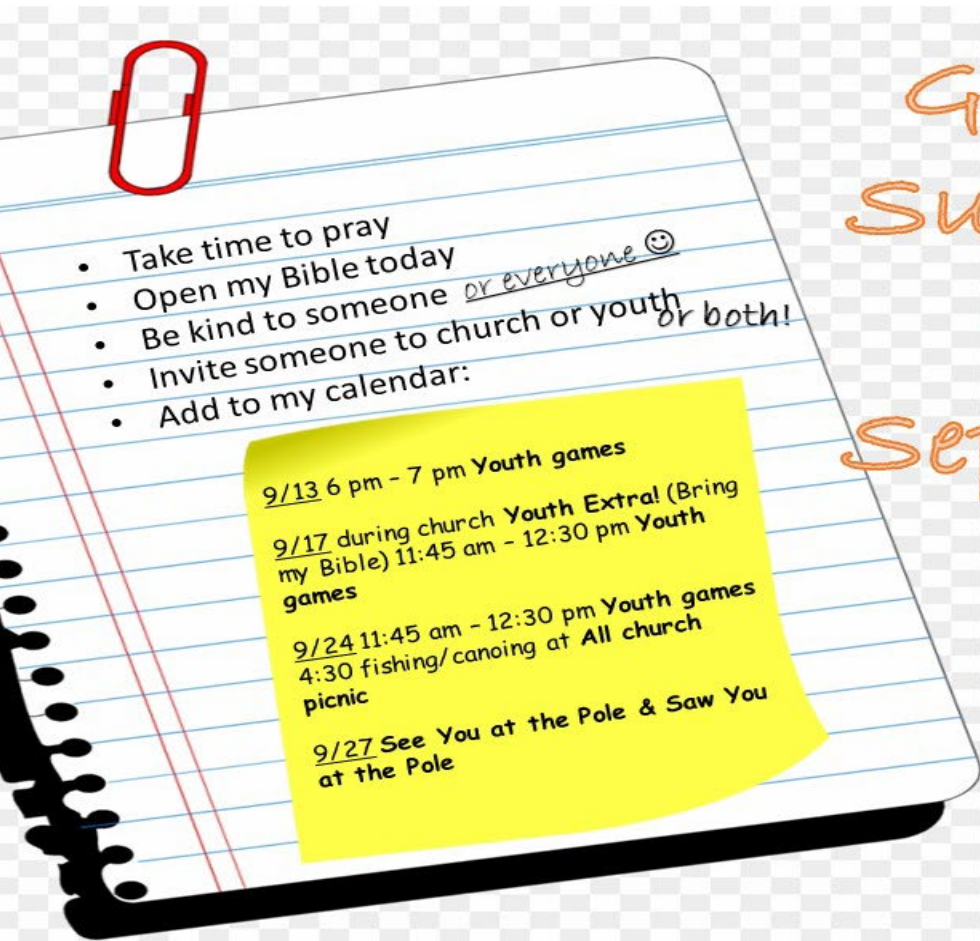 Take time to pray
Open my Bible today
Be kind to someone or everyone ☺
Invite someone to church or youth or both!
Add to my calendar:
9/13 6 pm – 7 pm Youth games
9/17 during church Youth Extra! (Bring
my Bible) 11:45 am – 12:30 pm Youth
games
9/24 11:45 am – 12:30 pm Youth games
4:30 fishing/canoing at All church
picnic
9/27 See You at the Pole & Saw You
at the Pole